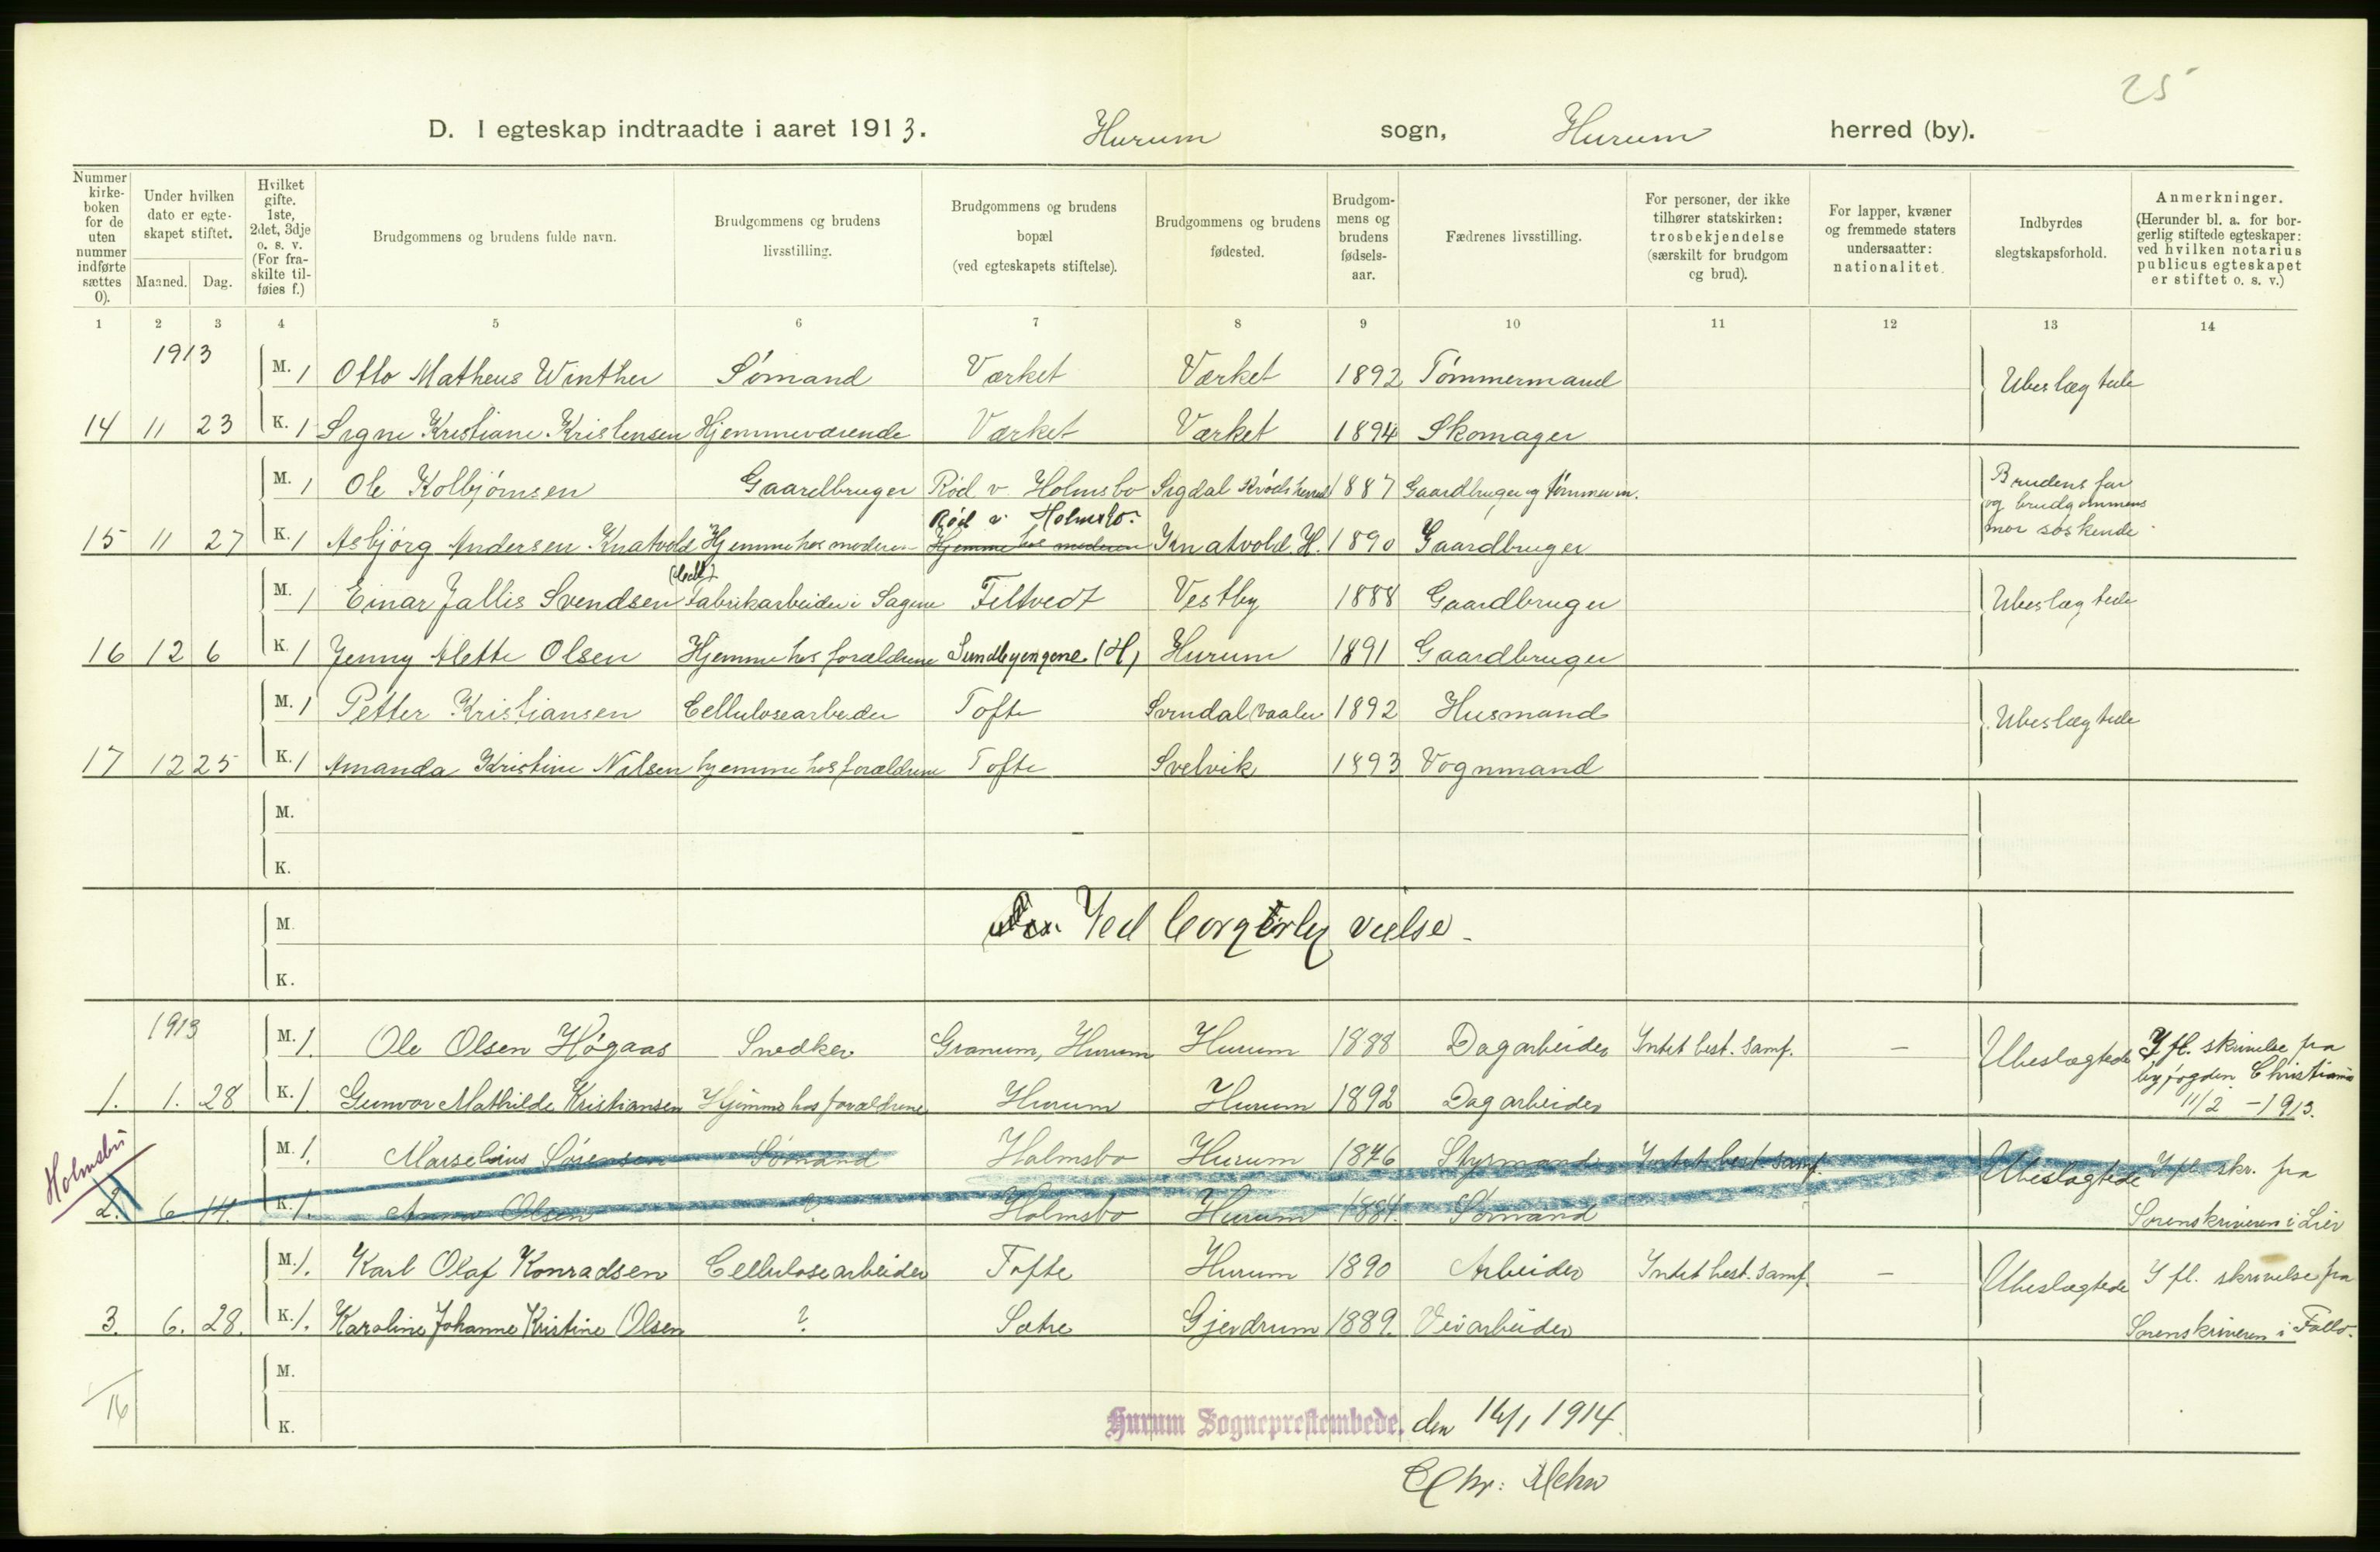 25
D. I egteskap indtraadte i aaret 1913. Hurum sogn, Hurum herred (by).
Nummer kirkeboken for de uten nummer indførte sættes 0).
Under hvilken dato er egteskapet stiftet.
Maaned. Dag.
Hvilket gifte. 1ste, 2det, 3dje o. s. v. (For fraskilte tilføies f.)
Brudgommens og brudens fulde navn.
Brudgommens og brudens livsstilling.
Brudgommens og brudens bopæl (ved egteskapets stiftelse).
Brudgommens og brudens fødested.
Brudgommens og brudens fødselsaar.
Fædrenes livsstilling.
For personer, der ikke tilhører statskirken: trosbekjendelse (særskilt for brudgom og brud).
For lapper, kvæner og fremmede staters undersaatter: nationalitet.
Indbyrdes slegtskapsforhold.
Anmerkninger. (Herunder bl. a. for borgerlig stiftede egteskaper: ved hvilken notarius publicus egteskapet er stiftet o. s. v.)
1 2 3 4 5 6 7 8 9 10 11 12 13 14
1913
M. 1 Otto Matheus Winther Sømand Værket Værket 1892 Tømmermand Ubeslægtede
14 11 23 K. 1 Signe Kristiane Kristensen Hjemmeværende Værket Værket 1894 Skomager
M. 1 Ole Kolbjørnsen Gaardbruger Rød v. Holmsbo Sigdal Krødsherred 1887 Gaardbruger og tømmerm. Brudens far
og brudgommens
Rød v. Holmsbo.
15 11 27 K. 1 Asbjørg Andersen Knatvold Hjemme hos moderen Hjemme hos moderen Knatvold H. 1890 Gaardbruger mor søskende
M. 1 Einar Jallis Svendsen Fabrikarbeider i Sagene Filtvedt Vestby 1888 Gaardbruger Ubeslægtede
16 12 6 K. 1 Jenny Alette Olsen Hjemme hos forældrene Sundbyengene (H) Hurum 1891 Gaardbruger
M. 1 Petter Kristiansen Cellulosearbeider Tofte Svindal Vaaler 1892 Husmand Ubeslægtede
17 12 25 K. 1 Amanda Kristine Nilsen hjemme hos forældrene Tofte Svelvik 1893 Vognmand
M.
K.
M. Ved borgerlig vielse
K.
1913
M. 1. Ole Olsen Høgaas Snedker Granum, Hurum Hurum 1888 Dagarbeider Intet best. samf. — Ubeslægtede I fl. skrivelse fra
byfogden Christiania
1. 1. 28 K. 1. Gunvor Mathilde Kristiansen Hjemme hos forældrene Hurum Hurum 1892 Dagarbeider 11/2 - 1913.
Holmsbu
M. 1. Marselius Sørensen Sømand Holmsbo Hurum 1876 Styrmand Intet best. samf. Ubeslægtede I fl. skr. fra
2. 6. 14. K. 1. Anna Olsen ? Holmsbo Hurum 1884. Sømand Sorenskriveren i Lier
M. 1. Karl Olaf Konradsen Cellulosearbeider Tofte Hurum 1890 Arbeider Intet best. samf. — Ubeslægtede I fl. skrivelse fra
3. 6. 28. K. 1. Karoline Johanne Kristine Olsen ? Sætre Gjerdrum 1889. Veiarbeider Sorenskriveren i Follo.
M.
16
K. Hurum Sogneprestembede, den 16/1 1914.
Chr: